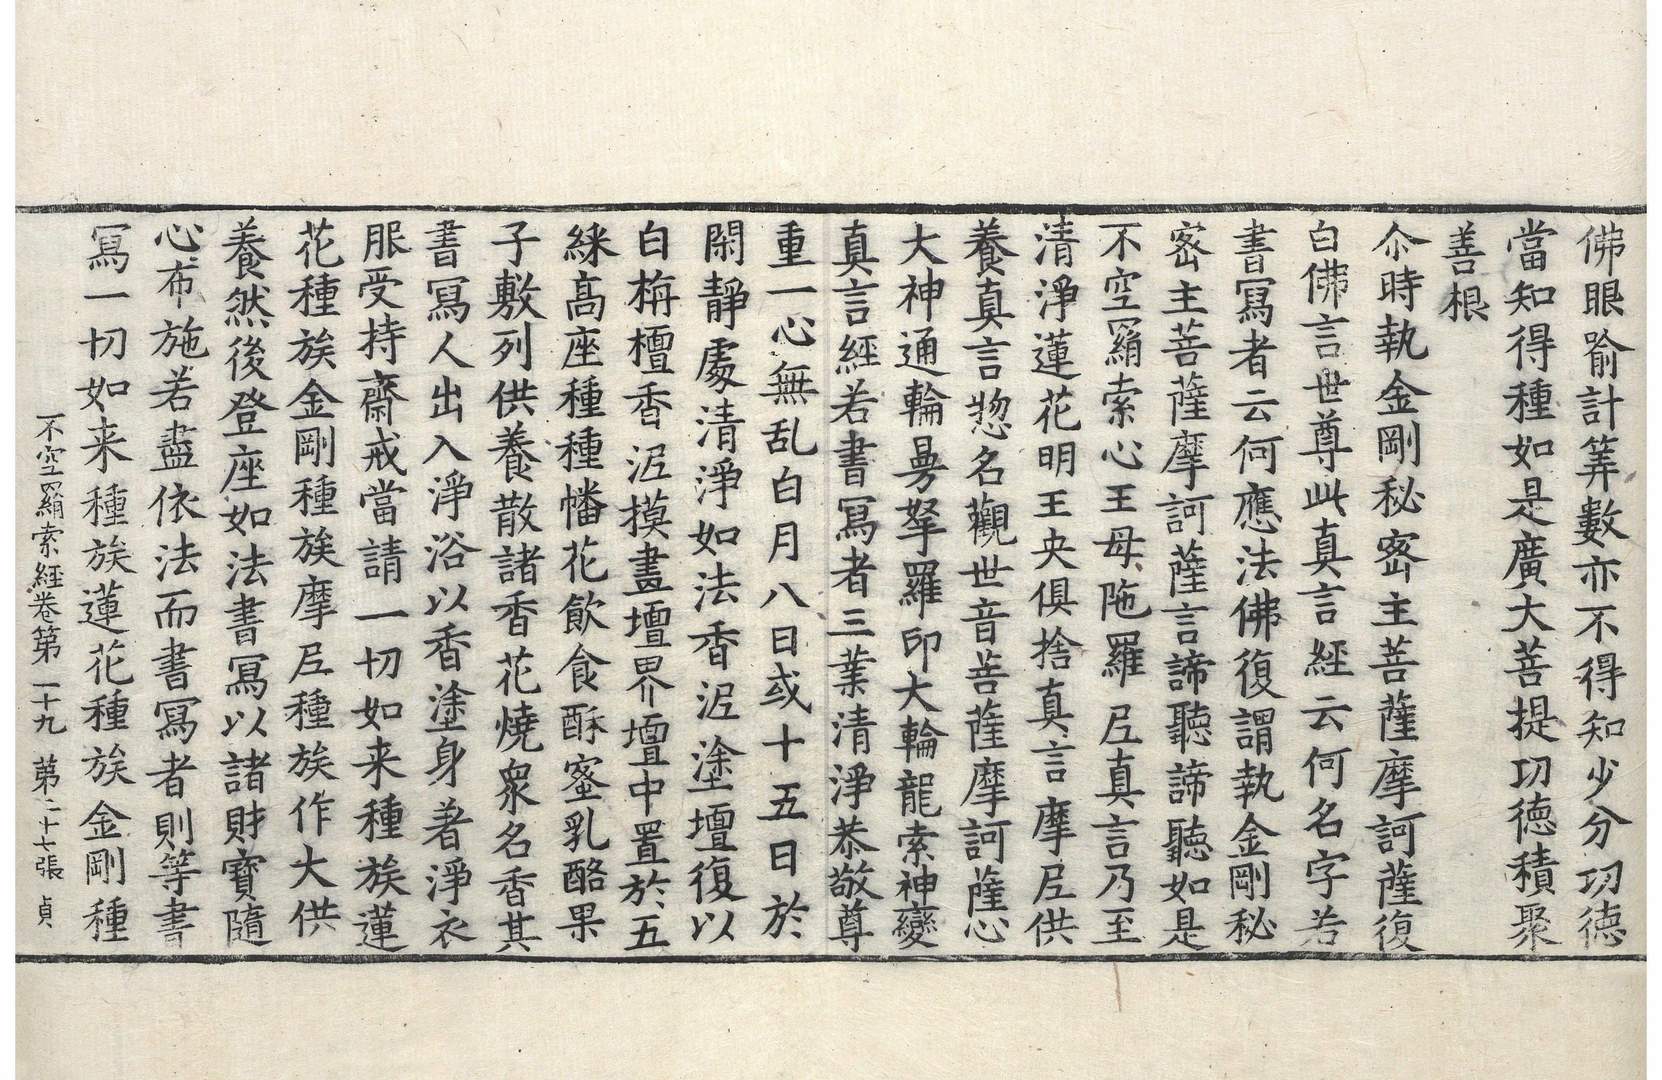 佛眼喻計筭數亦不得知少分功德
當知得種如是廣大菩提功德積聚
善根
尒時執金剛秘密主菩薩摩訶薩復
白佛言世尊此真言經云何名字若
書寫者云何應法佛復謂執金剛秘
密主菩薩摩訶薩言諦聽諦聽如是
不空羂索心王母陁羅尼真言乃至
清淨蓮花明王央俱捨真言摩尼供
養真言惣名觀世音菩薩摩訶薩心
大神通輪曼拏羅印大輪龍索神變
真言經若書寫者三業清淨恭敬尊
重一心無乱白月八日或十五日於
閑靜處清淨如法香泥塗壇復以
白栴檀香泥摸畫壇界壇中置於五
綵高座種種幡花飲食酥蜜乳酪果
子敷列供養散諸香花燒衆名香其
書寫人出入淨浴以香塗身著淨衣
服受持齋戒當請一切如来種族蓮
花種族金剛種族摩尼種族作大供
養然後登座如法書寫以諸財寶隨
心布施若盡依法而書寫者則等書
寫一切如来種族蓮花種族金剛種
不空羂索經卷第二十九 第二十七張 貞